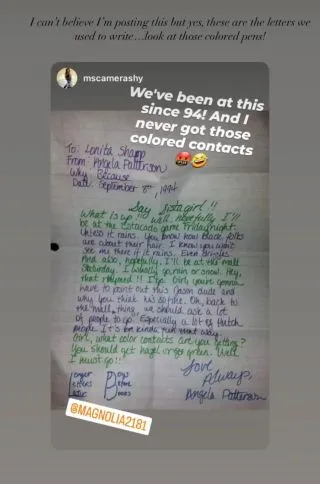 I can't believe I'm posting this but yes, these are the letters we
used to write...look at those colored pens!
mscamerashy
We've been at this
since 94! And I
never got those
colored contacts
🤬🤣
To: Lonita Sharp
From: Angela Patterson
Why: Because
Date: September 8th, 1994
Say Sistagirl!!
What is up!! Well, hopefully I'll
be at the Estacado game Friday night.
Unless it rains. You know how black folks
are about their hair. I know you won't
see me there if it rains. Even drizzles.
And also, hopefully, I'll be at the mall
Saturday. I usually go, rain or snow. Hey,
that rhymed!! I go! Girl, you're gonna
have to point out this Jason dude and
why you think his so fine. Oh, back to
the mall thing, we should ask a lot
of people to go. Especially a lot of Hutch
people. It's fun kinda, that way.
Girl, what color contacts are you getting?
You should get hazel or go green. Well
I must go!!
Love
Always,
Angela Patterson
Longer Days
Letters Before
Later Dooes
@MAGNOLIA2181